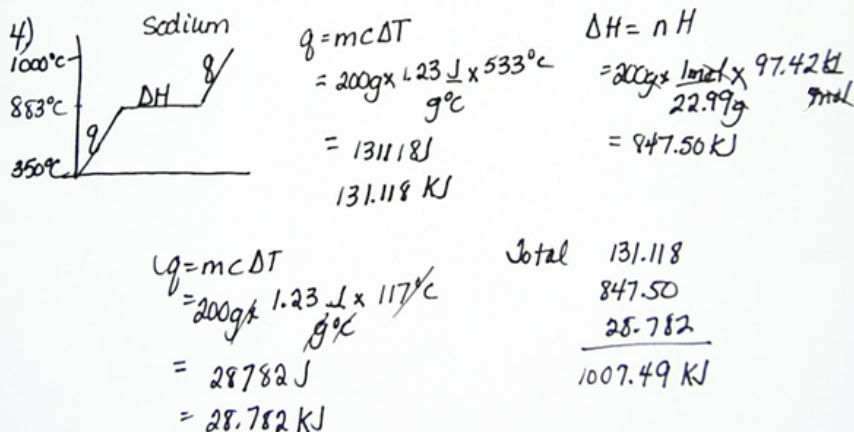 4) Sodium
1000°C
883°C
350°C
q
ΔH
q
q = mcΔT
= 200g x 1.23 J x 533°C
g°C
= 131118J
131.118 KJ
ΔH = nH
= 200g x 1mol x 97.42 kJ
22.99g mol
= 847.50 KJ
q = mcΔT
= 200g x 1.23 J x 117°C
g°C
= 28782 J
= 28.782 KJ
Total 131.118
847.50
28.782
1007.49 KJ